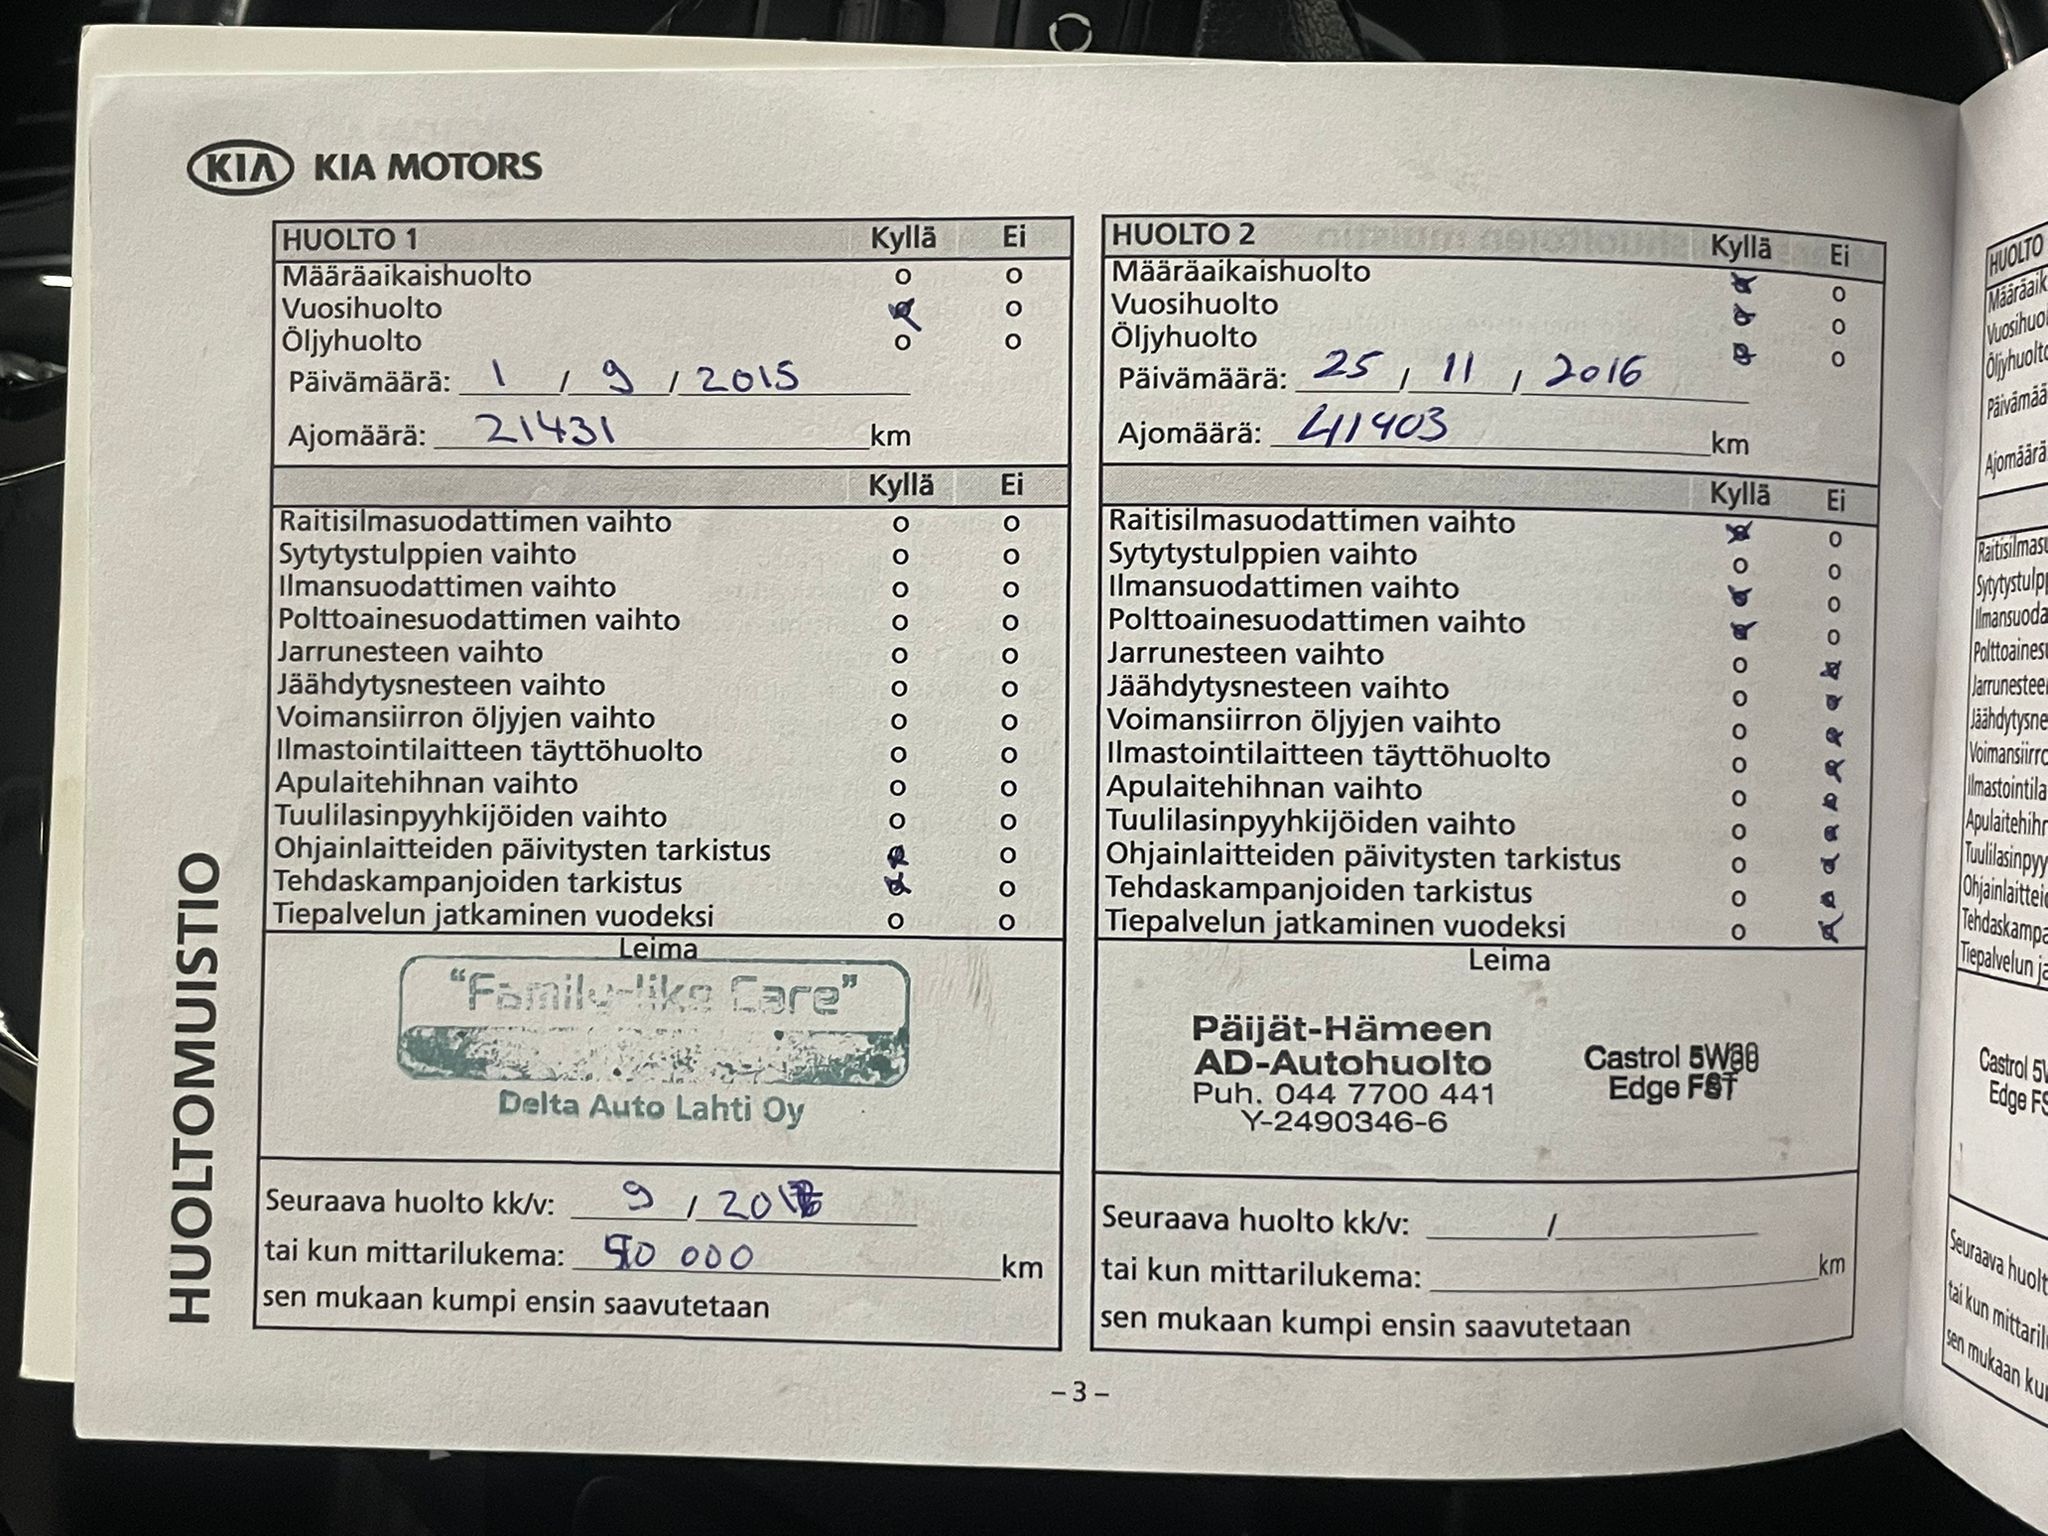 KIA KIA MOTORS
HUOLTOMUISTIO
HUOLTO 1 Kyllä Ei
Määräaikaishuolto o o
Vuosihuolto o
Öljyhuolto o o
Päivämäärä: 1 / 9 / 2015
Ajomäärä: 21431 km
Kyllä Ei
Raitisilmasuodattimen vaihto o o
Sytytystulppien vaihto o o
Ilmansuodattimen vaihto o o
Polttoainesuodattimen vaihto o o
Jarrunesteen vaihto o o
Jäähdytysnesteen vaihto o o
Voimansiirron öljyjen vaihto o o
Ilmastointilaitteen täyttöhuolto o o
Apulaitehihnan vaihto o o
Tuulilasinpyyhkijöiden vaihto o o
Ohjainlaitteiden päivitysten tarkistus o
Tehdaskampanjoiden tarkistus o
Tiepalvelun jatkaminen vuodeksi o o
Leima
"Family-like Care"
Delta Auto Lahti Oy
Seuraava huolto kk/v: 9 /
tai kun mittarilukema: 000 km
sen mukaan kumpi ensin saavutetaan
HUOLTO 2 Kyllä Ei
Määräaikaishuolto o
Vuosihuolto o
Öljyhuolto o
Päivämäärä: 25 / 11 / 2016
Ajomäärä: 41403 km
Kyllä Ei
Raitisilmasuodattimen vaihto o
Sytytystulppien vaihto o o
Ilmansuodattimen vaihto o
Polttoainesuodattimen vaihto o
Jarrunesteen vaihto o
Jäähdytysnesteen vaihto o
Voimansiirron öljyjen vaihto o
Ilmastointilaitteen täyttöhuolto o
Apulaitehihnan vaihto o
Tuulilasinpyyhkijöiden vaihto o
Ohjainlaitteiden päivitysten tarkistus o
Tehdaskampanjoiden tarkistus o
Tiepalvelun jatkaminen vuodeksi o
Leima
Päijät-Hämeen
AD-Autohuolto
Puh. 044 7700 441
Y-2490346-6
Castrol 5W30
Edge FST
Seuraava huolto kk/v: /
tai kun mittarilukema: km
sen mukaan kumpi ensin saavutetaan
– 3 –
HUOLTO
Castrol
Edge
Seuraava
tai kun
sen mukaan